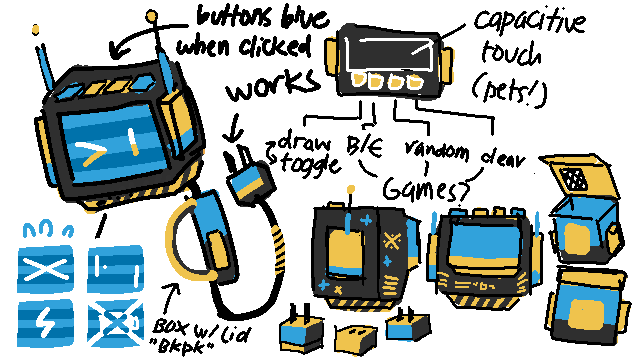 buttons blue
when clicked
works
capacitive
touch
(pets!)
draw
toggle
B/E
random
clear
Games?
BOX w/ lid
"BKPK"